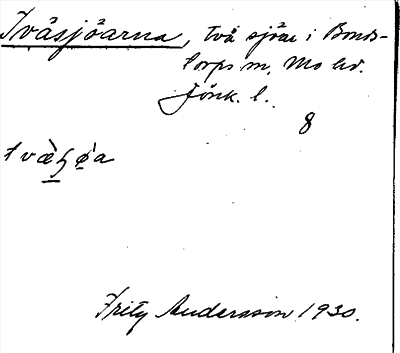 Tväsjöarna, två sjöar i Bonds-
torps sn, Mo hd.
Jönk. l.
8
tvæ̀ɧø̀a
Fritz Andersson 1930.